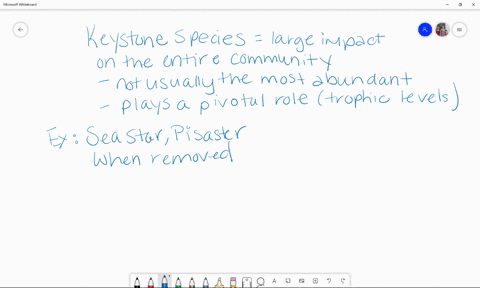 Microsoft Whiteboard
Keystone Species = large impact
on the entire community
- not usually the most abundant
- plays a pivotal role (trophic levels)
Ex: Sea Star, Pisaster
When removed